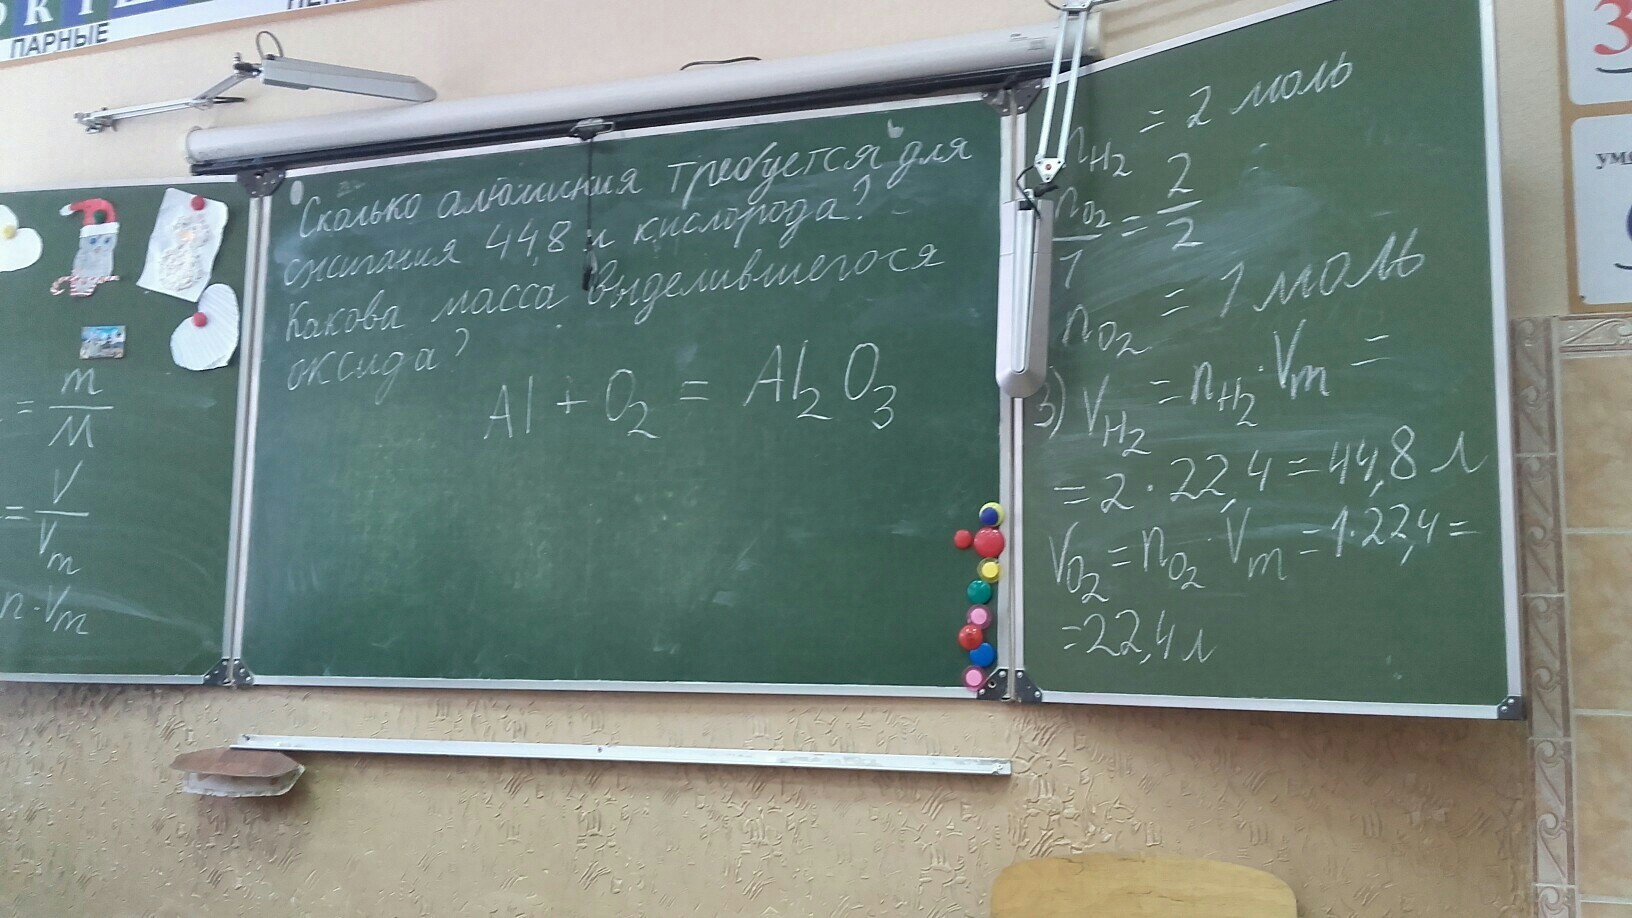 ПАРНЫЕ
= m
M
= V
Vm
n · Vm
Сколько алюминия требуется для
сжигания 44,8 л кислорода?
Какова масса выделившегося
оксида?
Al + O2 = Al2O3
nH2 = 2 моль
nO2 = 2
1 2
nO2 = 1 моль
3) VH2 = nH2 · Vm =
= 2 · 22,4 = 44,8 л
VO2 = nO2 · Vm = 1·22,4 =
= 22,4 л
З
уме